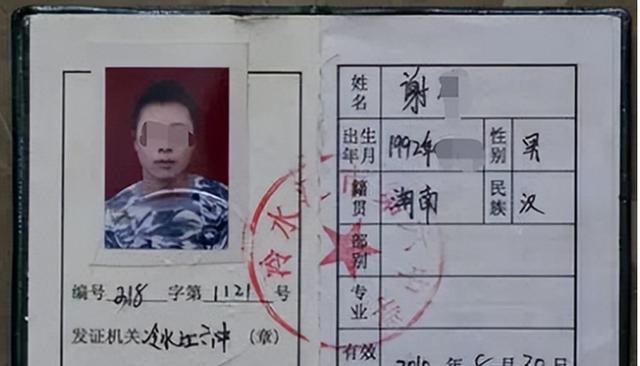 编号 218 字第 1121 号
发证机关 冷水江六中 (章)
姓名 谢
出生年月 1992年 性别 男
籍贯 湖南 民族 汉
部别
专业
有效 2010 年 6 月 30 日
冷水